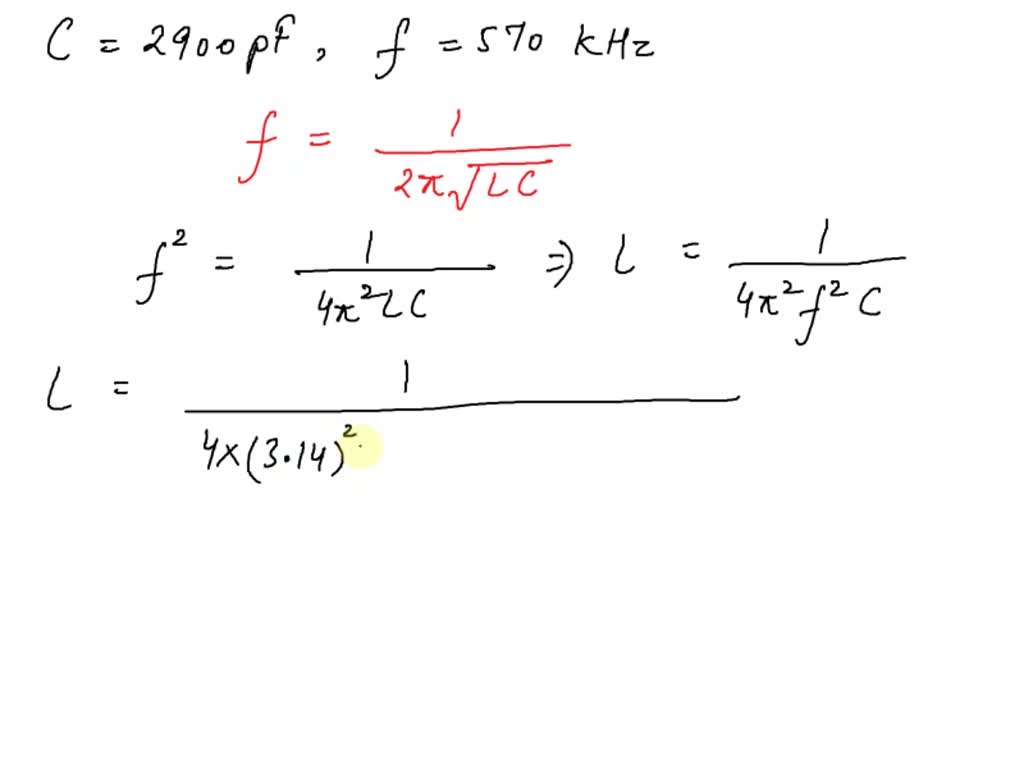 C = 2900 pF, f = 570 kHz
f = 1 / 2π√LC
f² = 1 / 4π²LC ⇒ L = 1 / 4π²f²C
L = 1 / 4×(3.14)²